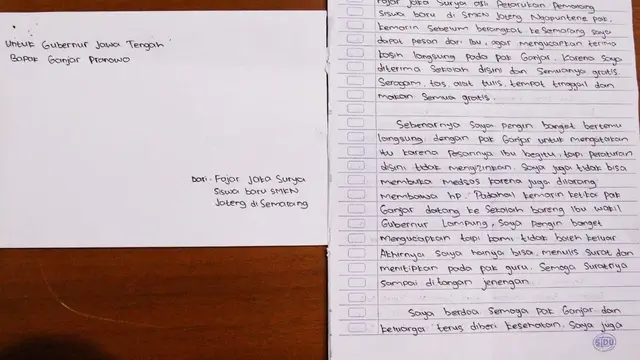 Untuk Gubernur Jawa Tengah
Bapak Ganjar Pranowo
Dari: Fajar Jaka Surya
Siswa baru SMKN
Jateng di Semarang
Fajar Jaka Surya asli Petarukan Pemalang
Siswa baru di SMKN Jateng Ngapuntene pak,
kemarin sebelum berangkat ke Semarang saya
dapat pesan dari Ibu, agar mengucapkan terima
kasih langsung pada pak Ganjar. Karena saya
diterima Sekolah disini dan Semuanya gratis.
Seragam, tas, alat tulis, tempat tinggal dan
makan Semua gratis.
Sebenarnya Saya pengin banget bertemu
langsung dengan pak Ganjar untuk mengatakan
itu karena pesannya Ibu begitu, tapi peraturan
disini tidak mengizinkan. Saya juga tidak bisa
membuka medsos karena juga dilarang
membawa hp. Padahal kemarin ketika pak
Ganjar datang ke Sekolah bareng Ibu wakil
Gubernur Lampung, Saya pengin banget
mengucapkan tapi kami tidak boleh keluar
Akhirnya saya hanya bisa menulis surat dan
menitipkan pada pak guru. Semoga Suratnya
sampai di tangan jenengan.
Saya berdoa Semoga pak Ganjar dan
keluarga terus diberi kesehatan. Saya juga
SiDU